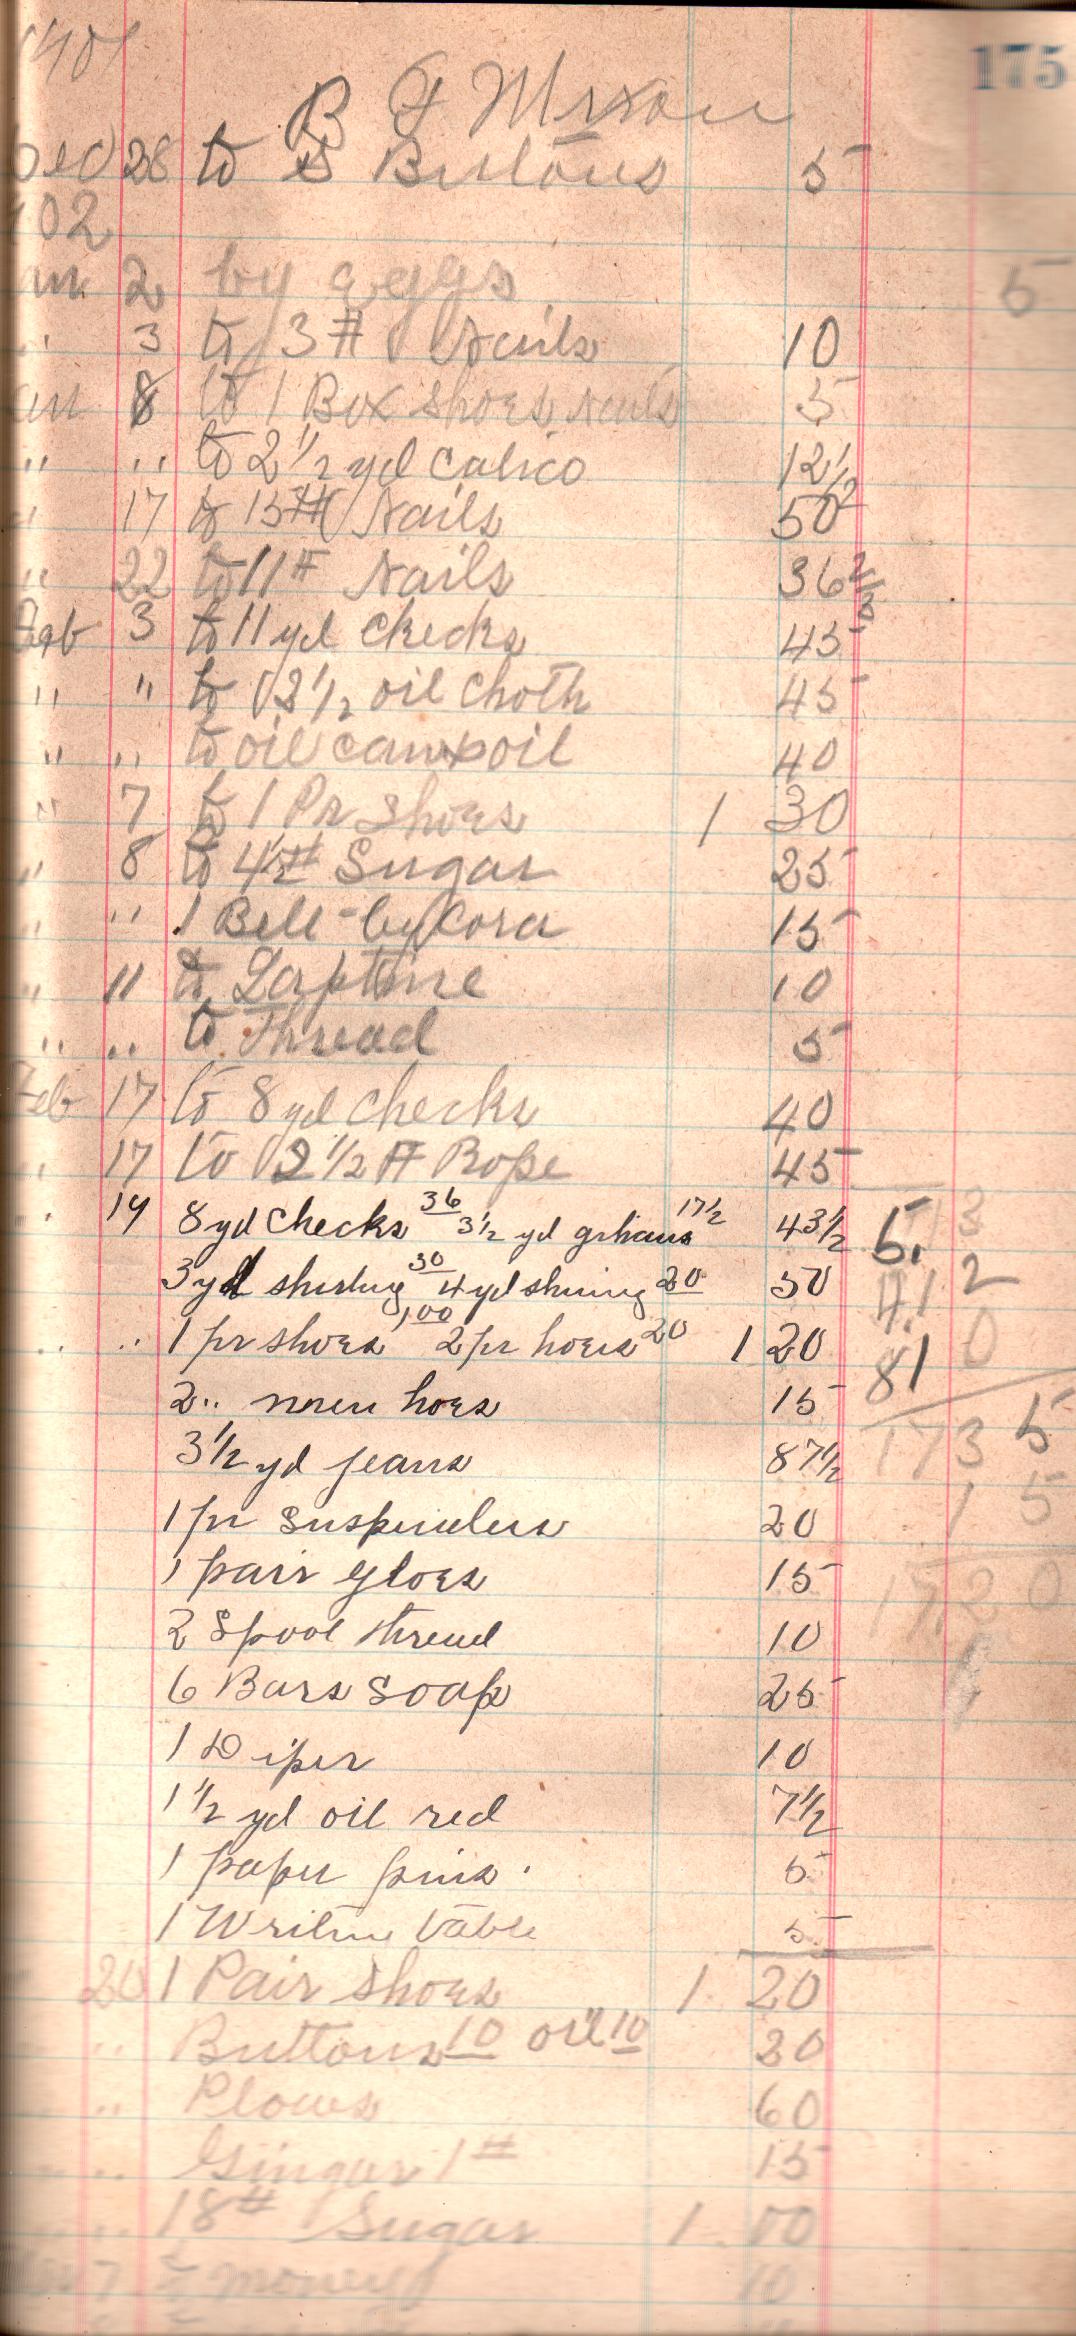 1901 175
B F Mixon
Dec 28 to Butons 5
1902
Jan 2 by eggs 5
" 3 to 3 # Nails 10
Jan 8 to 1 Box shoes nails 5
" " to 2 1/2 yd calico 12 1/2
" 17 to 15 # Nails 50
" 22 to 11 # Nails 36 2/3
Feb 3 to 11 yd checks 45
" " to 2 1/2 oil choth 45
" " to oil can & oil 40
" 7 to 1 Pr Shoes 1 30
" 8 to 4 1/2 # Sugar 25
" " 1 Belt - by Cora 15
" 11 to 10
" " to Thread 5
Feb 17 to 8 yd checks 40
" 17 to 2 1/2 # Rope 45
19 8 yd checks 36 3 1/2 yd 17 1/2 43 1/2 5.
3 yd 30 4 yd 20 50 2
" 1 pr shoes 1,00 2 pr hoes 20 1 20 81 0
2 " hoes 15 173 5
3 1/2 yd jeans 87 1/2 1 5
1 pr suspenders 20
1 pair gloes 15 17.20
2 Spool thread 10
6 Bars soap 25
1 Diper 10
1 1/2 yd oil red 7 1/2
1 paper pins 5
1 table 5
20 1 Pair shoes 1. 20
" Buttons 10 oil 10 20
" Plows 60
" Gingar 1 # 15
" 18 # Sugar 1. 00
7 to money 10